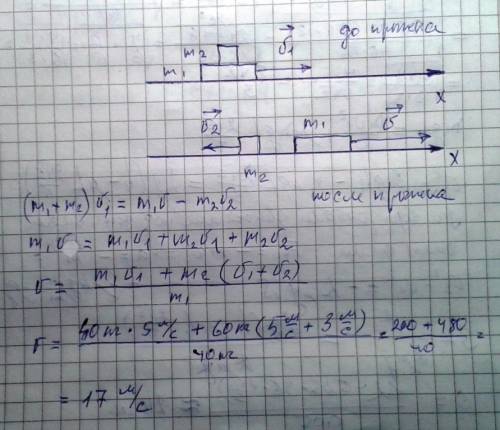 m₂ v⃗₁ до прыжка
m₁
X
v⃗₂ m₁ v⃗
m₂ X
(m₁+m₂)v₁ = m₁v − m₂v₂ после прыжка
m₁v = m₁v₁ + m₂v₁ + m₂v₂
v = (m₁v₁ + m₂(v₁+v₂))/m₁
= (40кг · 5 м/с + 60кг(5 м/с + 3 м/с))/40кг = (200 + 480)/40 =
= 17 м/с